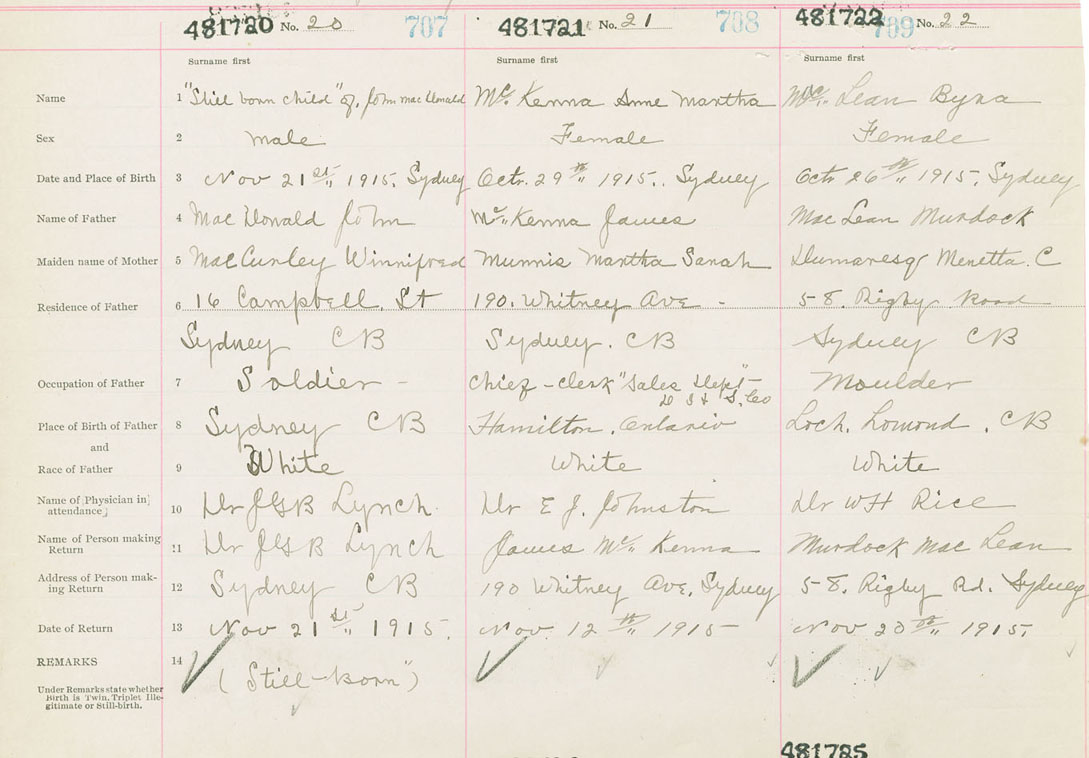 481720 No. 20 707 481721 No. 21 708 481722 No. 22 709
Surname first Surname first Surname first
Name 1 "Still born child" of John Mac Donald Mc Kenna Anne Martha Mc Lean Byra
Sex 2 Male Female Female
Date and Place of Birth 3 Nov 21st 1915. Sydney Octr. 29th 1915.. Sydney Octr 26th 1915. Sydney
Name of Father 4 Mac Donald John Mc Kenna James Mac Lean Murdock
Maiden name of Mother 5 MacCurley Winnifred Munnis Martha Sarah Dumaresq Menetta. C
Residence of Father 6 16 Campbell. St 190. Whitney Ave - 58. Rigby Road
Sydney CB Sydney. CB Sydney CB
Occupation of Father 7 Soldier - Chief-clerk "Sales Dept" Moulder
D I & S. Co
Place of Birth of Father 8 Sydney CB Hamilton. Ontario Loch. Lomond. CB
and
Race of Father 9 White White White
Name of [Physician in attendance] 10 Dr JGB Lynch. Dr E J. Johnston Dr WH Rice
Name of Person making Return 11 Dr JGB Lynch James Mc Kenna Murdock Mac Lean
Address of Person making Return 12 Sydney CB 190 Whitney Ave, Sydney 58. Rigby Rd. Sydney
Date of Return 13 Nov 21st 1915. Nov. 12th 1915 Nov 20th 1915.
REMARKS 14 (Still-born")
Under Remarks state whether
Birth is Twin, Triplet Ille-
gitimate or Still-birth.
481725